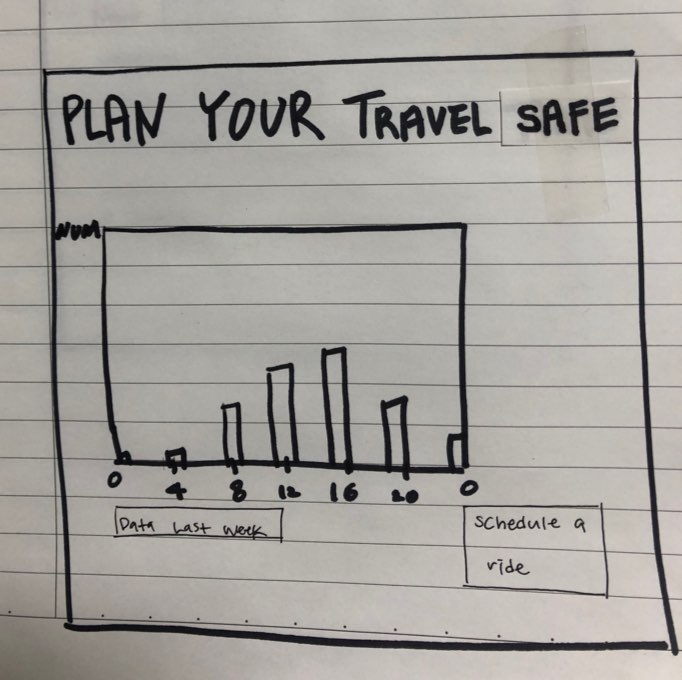 PLAN YOUR TRAVEL SAFE
NUM
0 4 8 12 16 20 0
Data Last week
Schedule a
ride